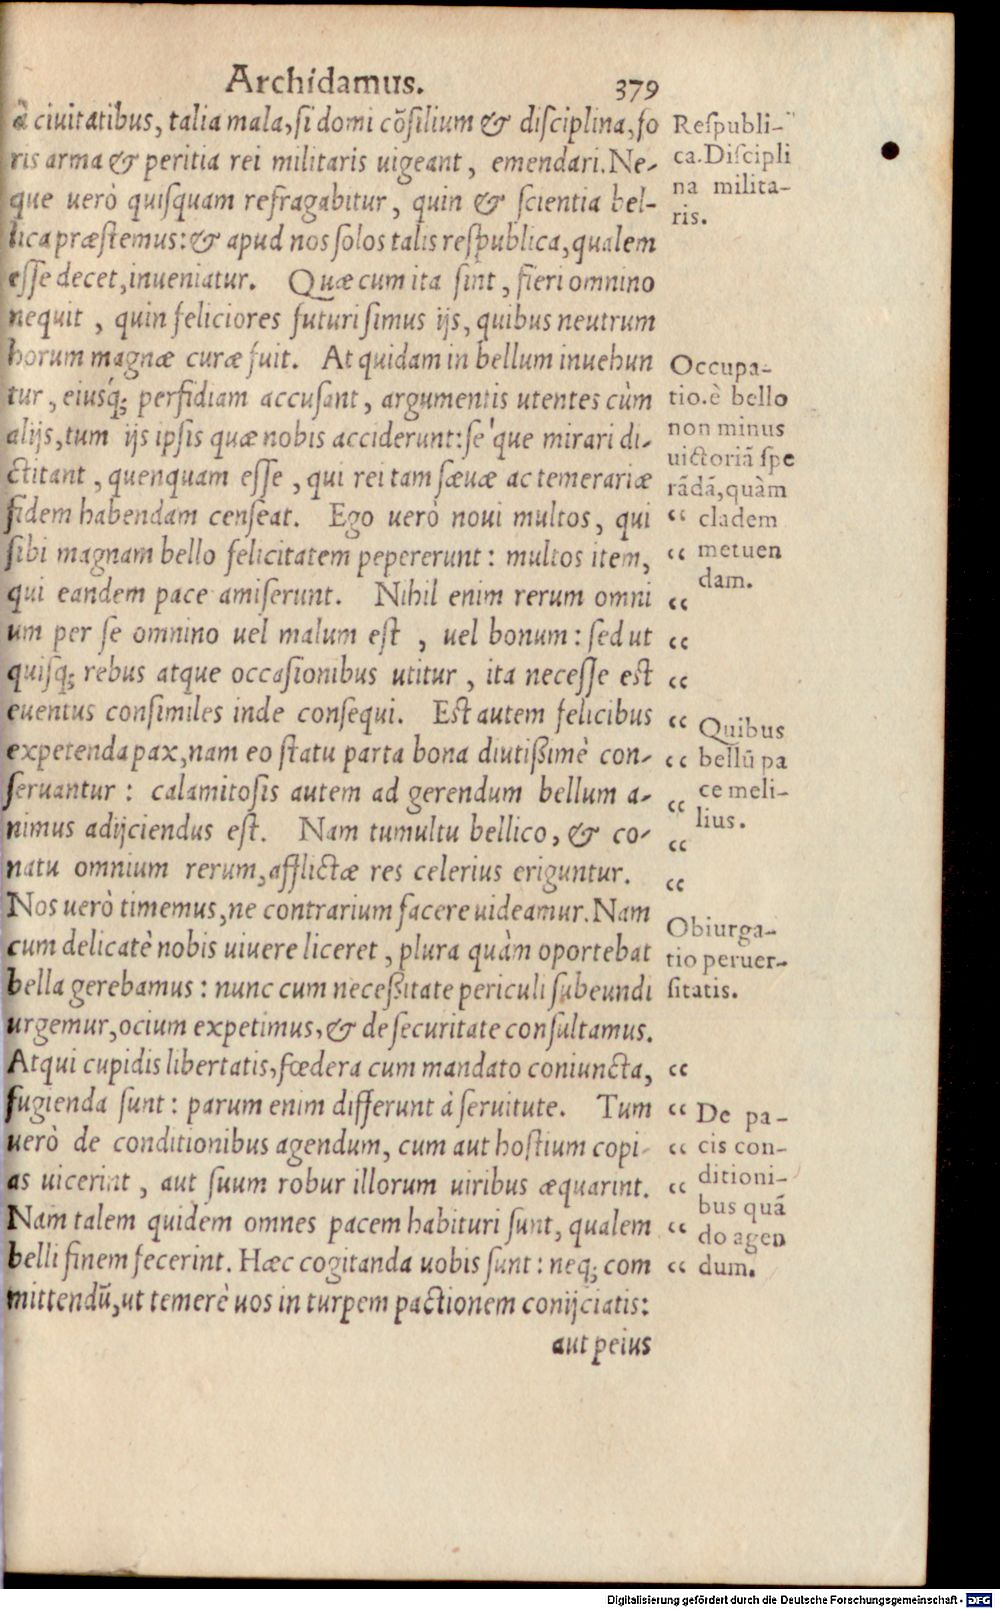 Archidamus. 379
à ciuitatibus, talia mala, si domi cõsilium & disciplina, fo
ris arma & peritia rei militaris uigeant, emendari. Ne-
que uerò quisquam refragabitur, quin & scientia bel-
lica præstemus: & apud nos solos talis respublica, qualem
esse decet, inueniatur. Quæ cum ita sint, fieri omnino
nequit, quin feliciores futuri simus ijs, quibus neutrum
horum magnæ curæ fuit. At quidam in bellum inuehun
tur, eiusq́; perfidiam accusant, argumentis utentes cùm
alijs, tum ijs ipsis quæ nobis acciderunt: se'que mirari di-
ctitant, quenquam esse, qui rei tam sæuæ ac temerariæ
fidem habendam censeat. Ego uerò noui multos, qui
sibi magnam bello felicitatem pepererunt: multos item,
qui eandem pace amiserunt. Nihil enim rerum omni
um per se omnino uel malum est, uel bonum: sed ut
quisq; rebus atque occasionibus utitur, ita necesse est
euentus consimiles inde consequi. Est autem felicibus
expetenda pax, nam eo statu parta bona diutißimè con-
seruantur: calamitosis autem ad gerendum bellum a-
nimus adijciendus est. Nam tumultu bellico, & co-
natu omnium rerum, afflictæ res celerius eriguntur.
Nos uerò timemus, ne contrarium facere uideamur. Nam
cum delicatè nobis uiuere liceret, plura quàm oportebat
bella gerebamus: nunc cum neceßitate periculi subeundi
urgemur, ocium expetimus, & de securitate consultamus.
Atqui cupidis libertatis, fœdera cum mandato coniuncta,
fugienda sunt: parum enim differunt à seruitute. Tum
uerò de conditionibus agendum, cum aut hostium copi-
as uicerint, aut suum robur illorum uiribus æquarint.
Nam talem quidem omnes pacem habituri sunt, qualem
belli finem fecerint. Hæc cogitanda uobis sunt: neq; com
mittendũ, ut temerè uos in turpem pactionem conijciatis:
aut peius
Respubli-
ca. Discipli
na milita-
ris.
Occupa-
tio. è bello
non minus
uictoriã spe
rãdã, quàm
“ cladem
“ metuen
dam.
“
“
“
“ Quibus
“ bellũ pa
“ ce meli-
lius.
“
“
Obiurga-
tio peruer-
sitatis.
“
“ De pa-
“ cis con-
“ ditioni-
bus quã
“ do agen
“ dum.
Digitalisierung gefördert durch die Deutsche Forschungsgemeinschaft - DFG